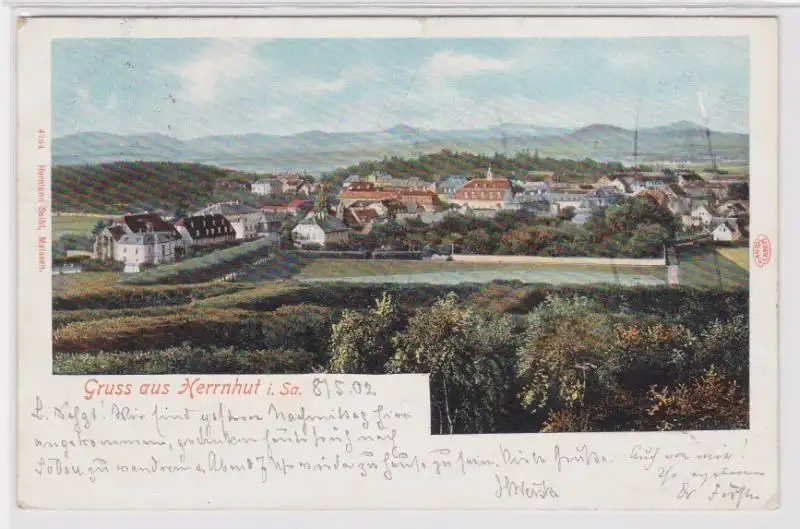 4764 Hermann Seibt, Meissen.
Gruss aus Herrnhut i. Sa. 8/5.02
L. Wir sind gestern Nachmittag hier
angekommen, gedenken heute früh nach
Löbau zu wandern u. Abend 7 Uhr wieder zu Hause zu sein. Viele Grüße.
Auch von mir!
Ihr ergebener
Dr